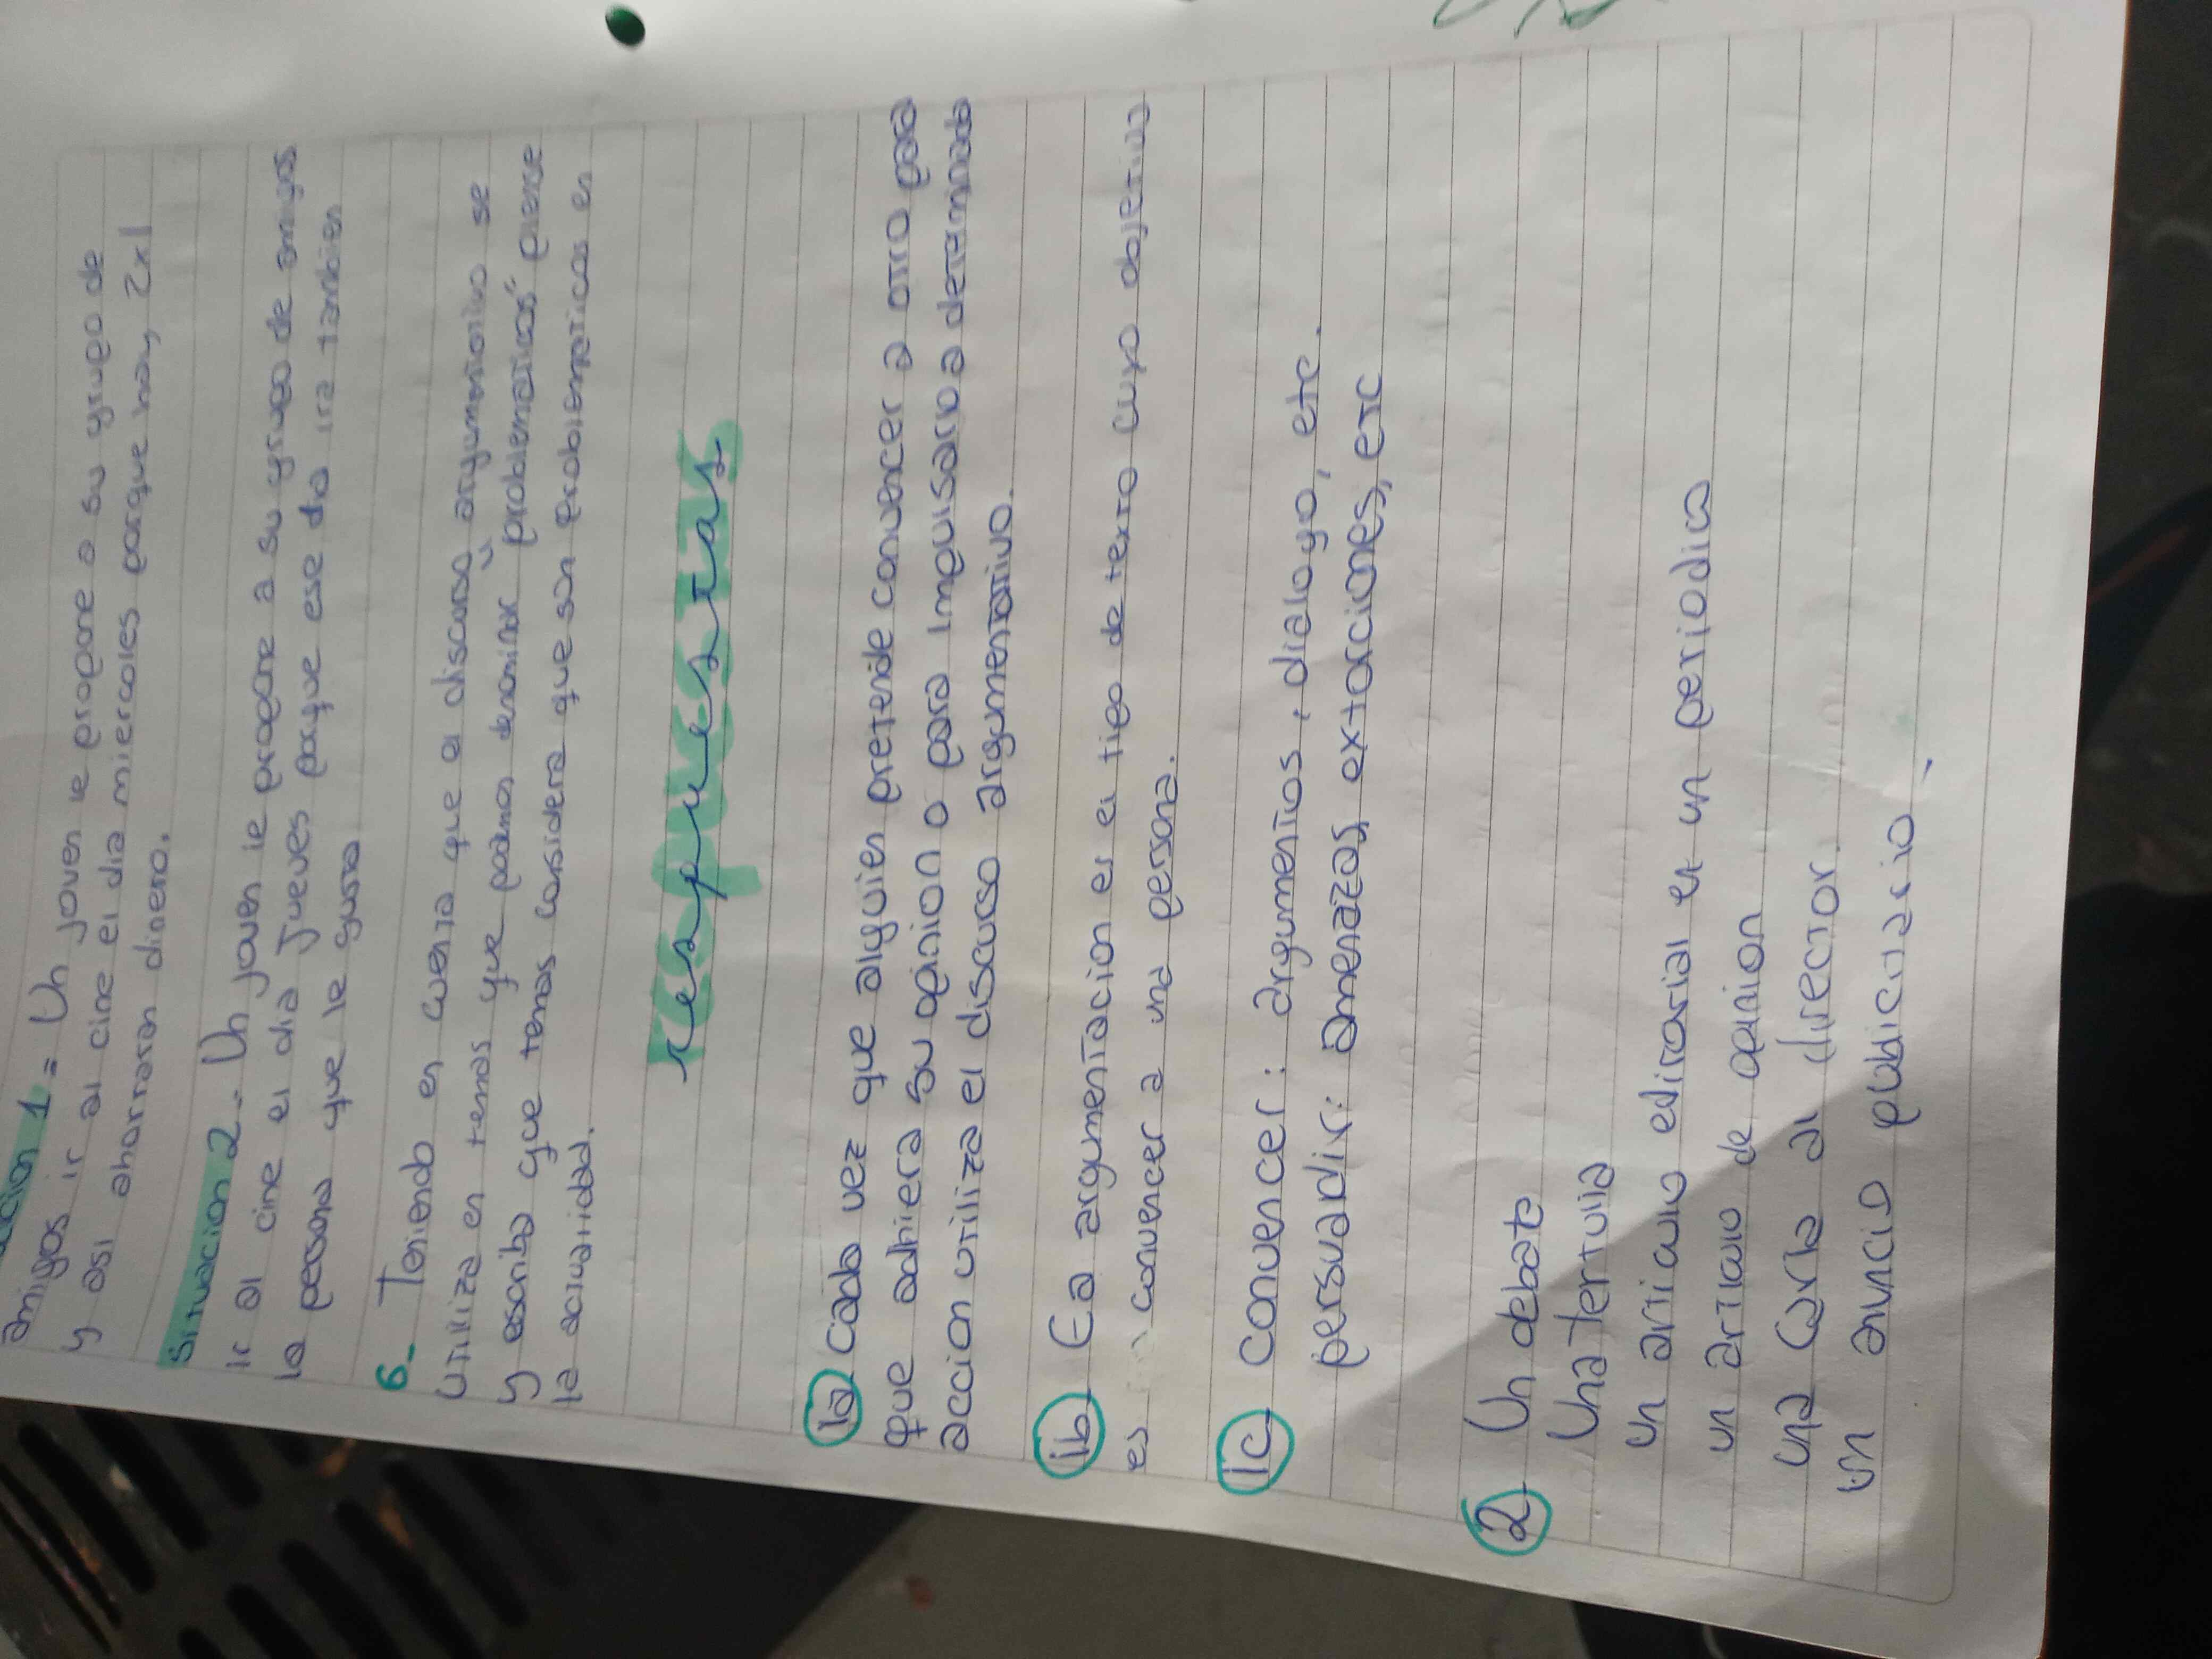 ación 1= Un joven le propone a su grupo de
amigos ir al cine el dia miercoles porque hay 2x1
y asi ahorraran dinero.
Situacion 2- Un joven le propone a su grupo de amigos
ir al cine el dia Jueves porque ese dia ira tambien
la persona que le gusta
6- Teniendo en cuenta que el discurso argumentativo se
utiliza en temas que podamos denominar "problematicos" piense
y escriba que temas considera que son problematicos en
la actualidad.
respuestas
1a Cada vez que alguien pretende convencer a otro para
que adhiera su opinion o para impulsarlo a determinada
accion utiliza el discurso argumentativo.
1b La argumentacion es el tipo de texto cuyo objetivo
es convencer a una persona.
1c convencer: argumentos, dialogo, etc.
persuadir: amenazas, extorciones, etc
2 Un debate
Una tertulia
un articulo editorial en un periodico
un articulo de opinion
una carta al director.
un anuncio publicitario